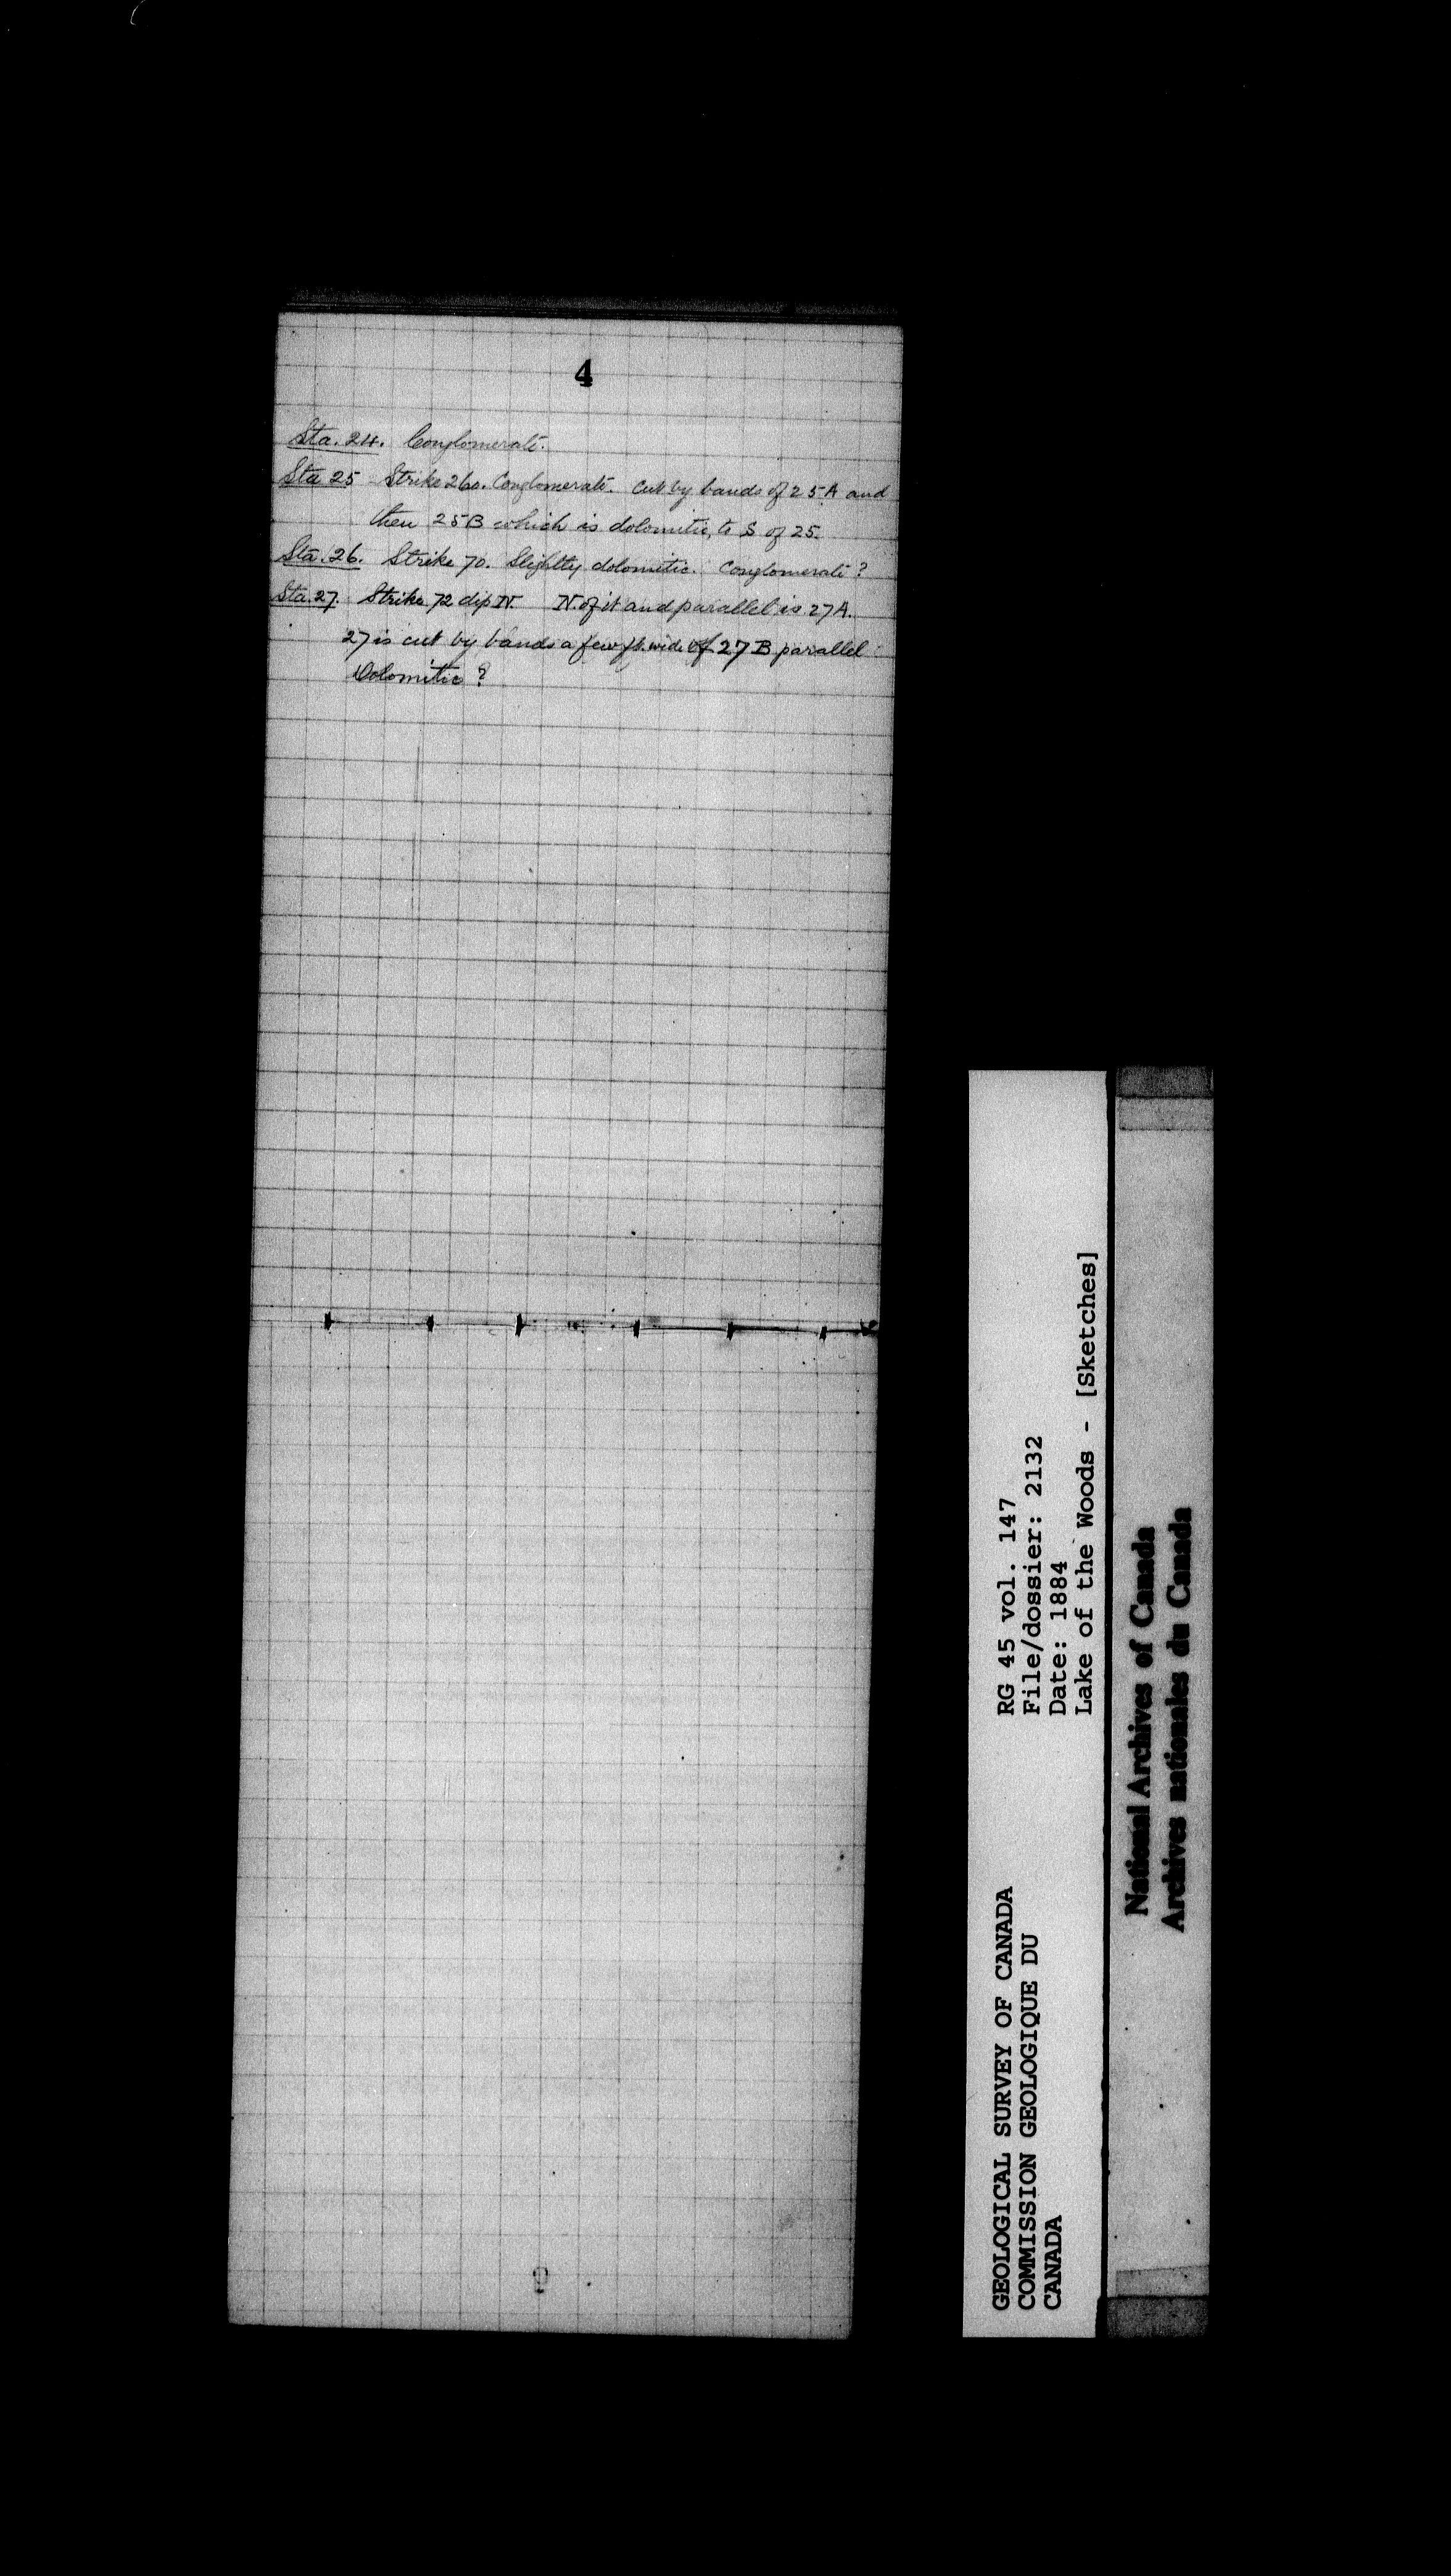 4
Sta. 24. Conglomerate.
Sta 25 Strike 260. Conglomerate. cut by bands of 25A and
then 25B which is dolomitic, to S of 25.
Sta. 26. Strike 70. Slightly dolomitic. Conglomerate?
Sta. 27. Strike 72 dip N. N. of it and parallel is 27A.
27 is cut by bands a few ft. wide of 27B parallel
Dolomitic?
GEOLOGICAL SURVEY OF CANADA
COMMISSION GEOLOGIQUE DU
CANADA
RG 45 vol. 147
File/dossier: 2132
Date: 1884
Lake of the Woods - [Sketches]
National Archives of Canada
Archives nationales du Canada